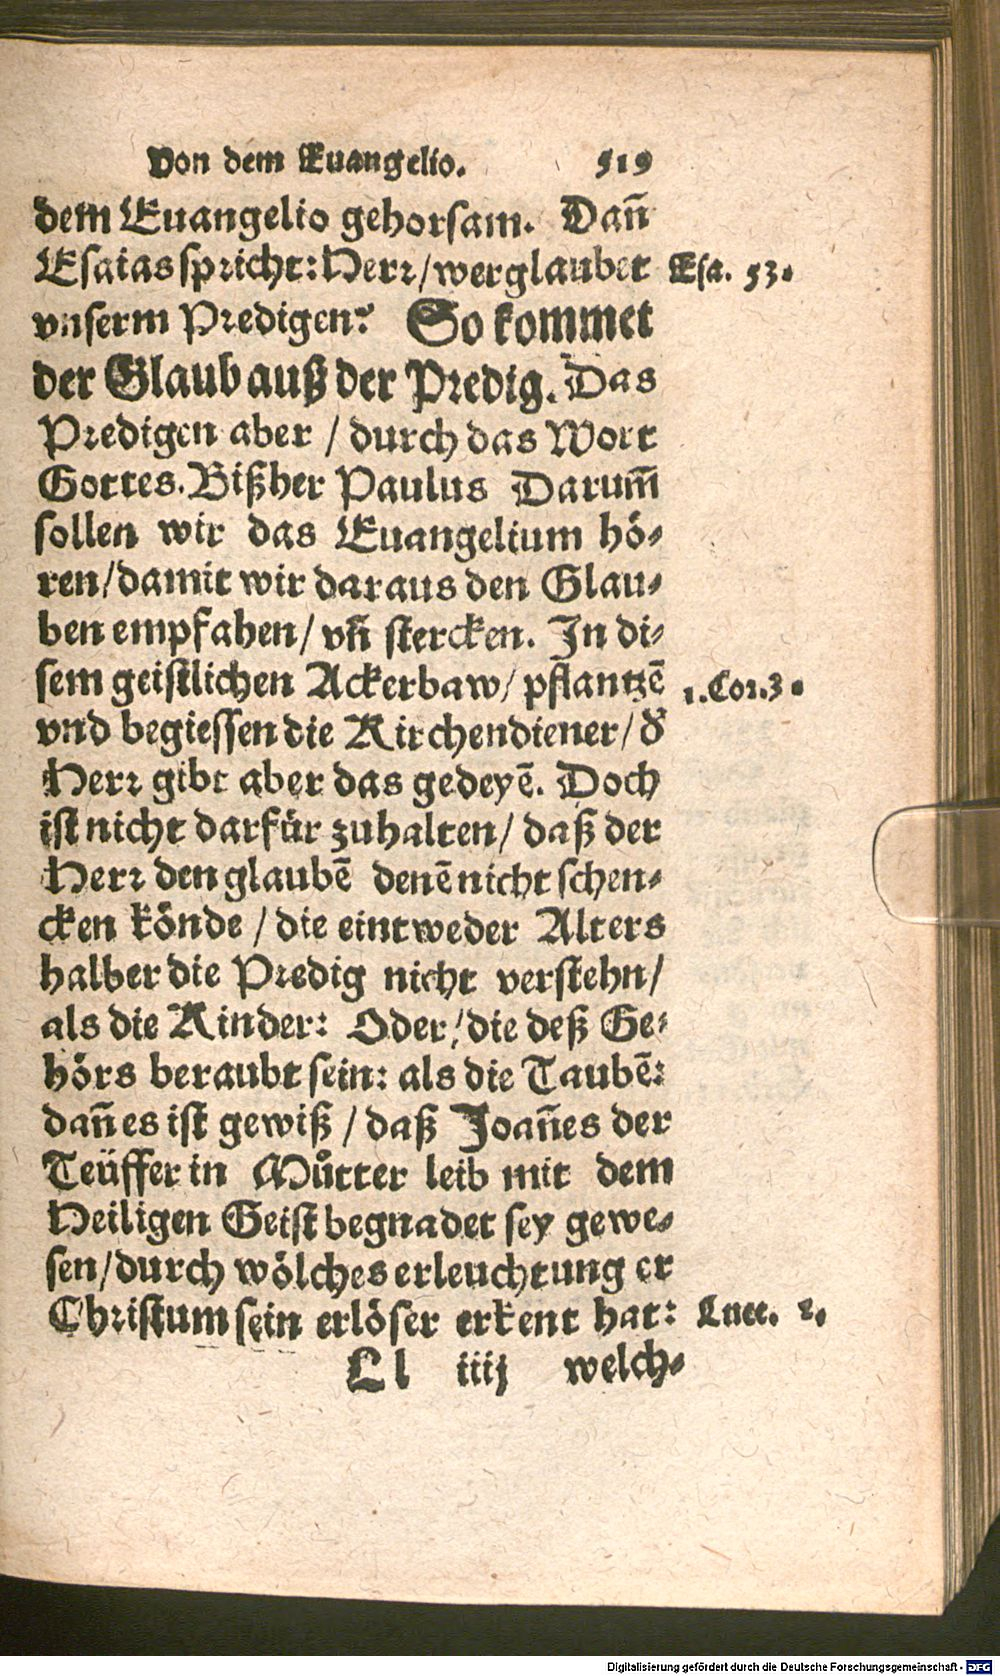 Von dem Euangelio. 519
dem Euangelio gehorsam. Dañ
Esaias spricht: Herr/ wer glaubet Esa. 53.
vnserm Predigen? So kommet
der Glaub auß der Predig. Das
Predigen aber / durch das Wort
Gottes. Bißher Paulus Darum̃
sollen wir das Euangelium hö-
ren/ damit wir daraus den Glau-
ben empfahen/ vñ stercken. In di-
sem geistlichen Ackerbaw/ pflantzẽ 1. Cor. 3.
vnd begiessen die Kirchendiener/ d̕
Herr gibt aber das gedeyẽ. Doch
ist nicht darfür zuhalten/ daß der
Herr den glaubẽ denẽ nicht schen-
cken könde / die eintweder Alters
halber die Predig nicht verstehn/
als die Kinder: Oder/ die deß Ge-
hörs beraubt sein: als die Taubẽ:
dañ es ist gewiß / daß Joañes der
Teüffer in Můtter leib mit dem
Heiligen Geist begnadet sey gewe-
sen/ durch wölches erleuchtung er
Christum sein erlöser erkent hat: Luce. 2.
Ll iiij welch-
Digitalisierung gefördert durch die Deutsche Forschungsgemeinschaft - DFG